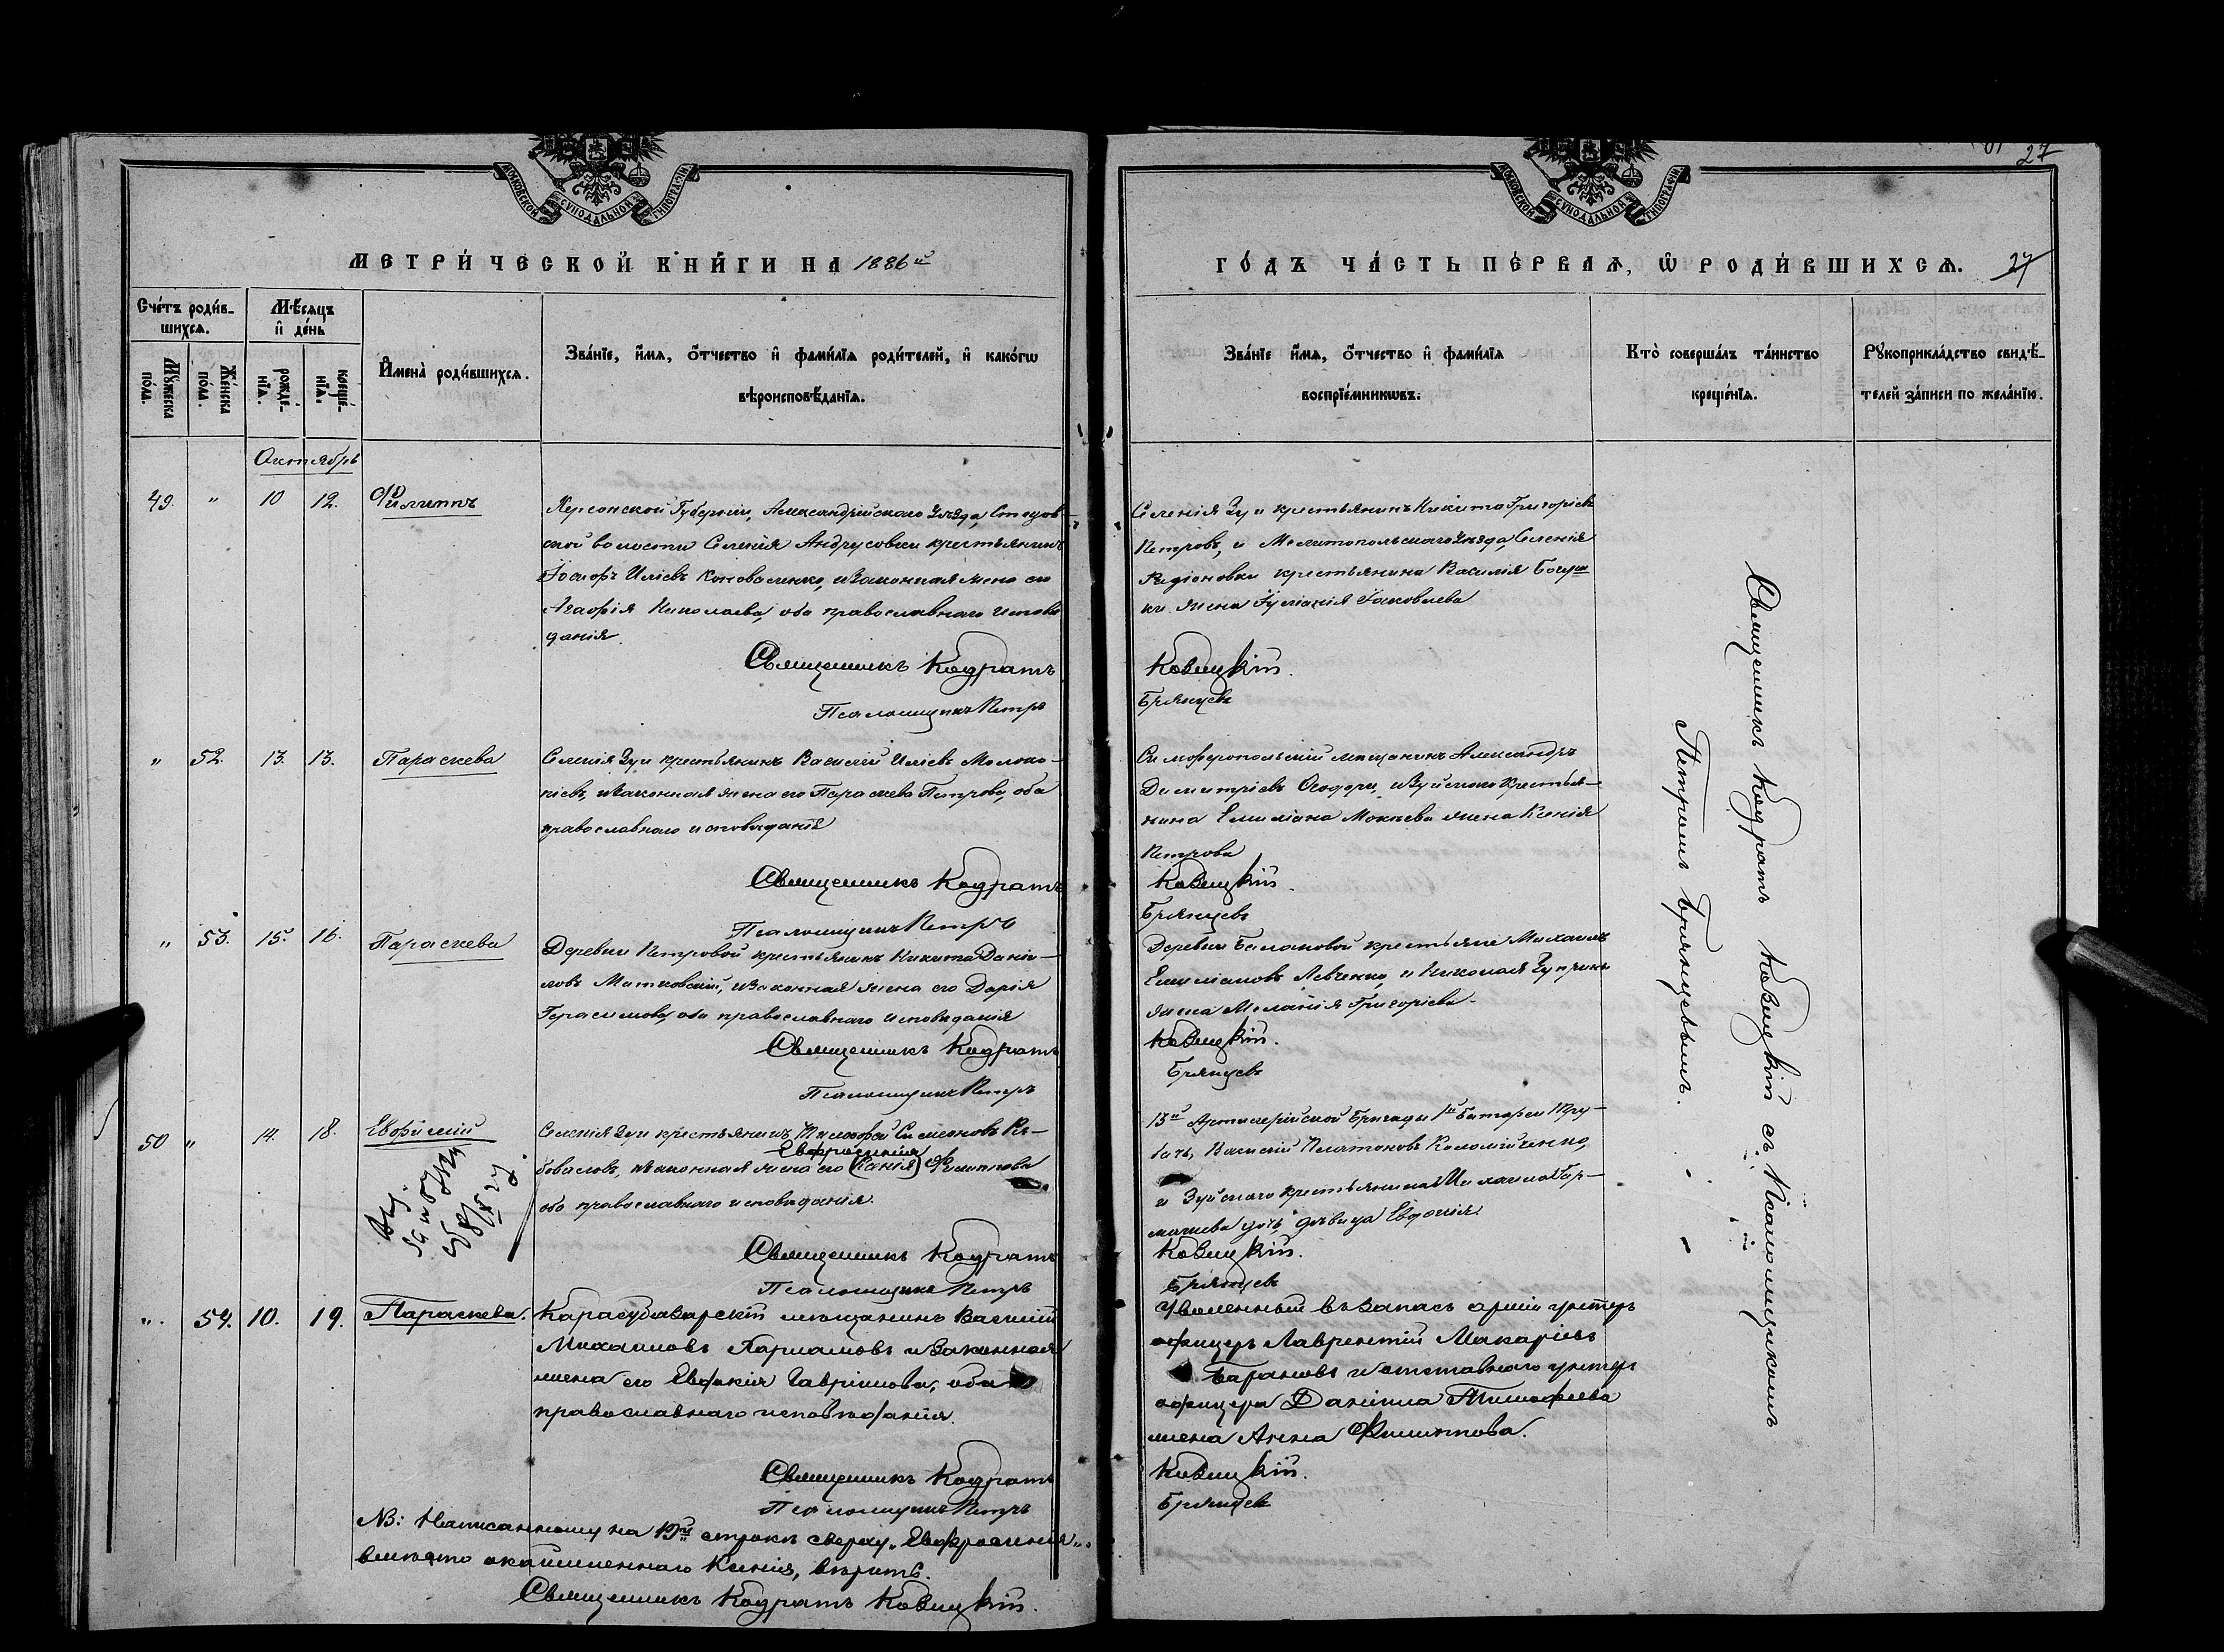 27
МОСКОВСКОЙ СѴНОДАЛЬНОЙ ТИПОГРАФІИ
МОСКОВСКОЙ СѴНОДАЛЬНОЙ ТИПОГРАФІИ
МЕТРИ́ЧЕСКОЙ КНИ́ГИ НА 1886й
ГО́ДЪ ЧА́СТЬ ПЕ́РВАѦ, Ѡ҆ РОДИ́ВШИХСѦ. 27
Сче́тъ роди́в-
шихсѧ.
Мꙋ́жеска по́ла.
Же́нска по́ла.
Мѣ́сѧцъ
и҆ де́нь
рожде́-нїѧ.
креще́-нїѧ.
И҆мена̀ роди́вшихсѧ.
Зва́нїе, и҆́мѧ, ѻ҆́тчество и҆ фами́лїѧ роди́телей, и҆ како́гѡ
вѣроисповѣ́данїѧ.
Зва́нїе и҆́мѧ, ѻ҆́тчество и҆ фами́лїѧ
воспрїе́мникѡвъ.
Кто̀ соверша́лъ та́инство
креще́нїѧ.
Рꙋкоприкла́дство свидѣ́-
телей за́писи по жела́нїю.
Октябрь
49. " 10 12. Филиппъ
Херсонской Губерніи, Александрійскаго Уѣзда, Стецов-
ской волости Селенія Андрусовки крестьянинъ
Іосифъ Иліевъ Коноваленко, и законная жена его
Агафія Николаева, оба православнаго исповѣ
данія.
Священникъ Кодратъ
Псаломщикъ Петръ
Селенія Зуи крестьянинъ Никита Григоріевъ
Петровъ, и Мелитопольскаго Уѣзда, Селенія
Радіоновки крестьянина Василія Богуш
ки жена Іуліанія Іаковлева
Ковицкій.
Брянцевъ
" 52. 13. 13. Параскева
Селенія Зуи крестьянинъ Василій Иліевъ Молоко-
ніевъ, и законная жена его Параскева Петрова, оба
православнаго исповѣданія
Священникъ Кодратъ
Псаломщикъ Петръ
Симферопольскій мѣщанинъ Александръ
Димитріевъ Ѳеодори, и Зуйскаго крестья-
нина Емиліана Мокіева жена Ксенія
Петрова
Ковицкій.
Брянцевъ
" 53. 15. 16. Параскева
Деревни Петровой крестьянинъ Никита Даніи-
ловъ Матковскій, и законная жена его Дарія
Герасимова, оба православнаго исповѣданія
Священникъ Кодратъ
Псаломщикъ Петръ
Деревни Балановой крестьяне Михаилъ
Емиліановъ Левченко, и Николая
жена Меланія Григоріева
Ковицкій.
Брянцевъ
50 " 14. 18. Евѳимій
Селенія Зуи крестьянинъ Тимоѳей Симеоновъ
Евфросинія
боваловъ, и законная жена его (Ксенія) Филиппова
оба православнаго исповѣданія.
Священникъ Кодратъ
Псаломщикъ Петръ
13й Артиллерійской Бригады 1й батареи Тру-
бачъ, Василій Платоновъ Коломійченко,
и Зуйскаго крестьянина Михаила
дочь, дѣвица Евдокія.
Ковицкій.
Брянцевъ
". 54. 10. 19. Параскева.
Карасубазарскій мѣщанинъ Василій
Михаиловъ Харламовъ и законная
жена его Евдокія Гавріилова, оба
православнаго исповѣданія.
Священникъ Кодратъ
Псаломщикъ Петръ
Уволенный въ запасъ арміи унтеръ
офицеръ Лаврентій Макаріевъ
Барановъ и отставнаго унтеръ
офицера Даніила Тимоѳеева
жена Анна Филиппова.
Ковицкій.
Брянцевъ
Священникъ Кодратъ Ковицкій съ Псаломщикомъ
Петромъ Брянцевымъ.
NB: Написанному на 19й строкѣ сверху „Евфросинія"
вмѣсто окаймленнаго Ксенія, вѣрить.
Священникъ Кодратъ Ковицкій.